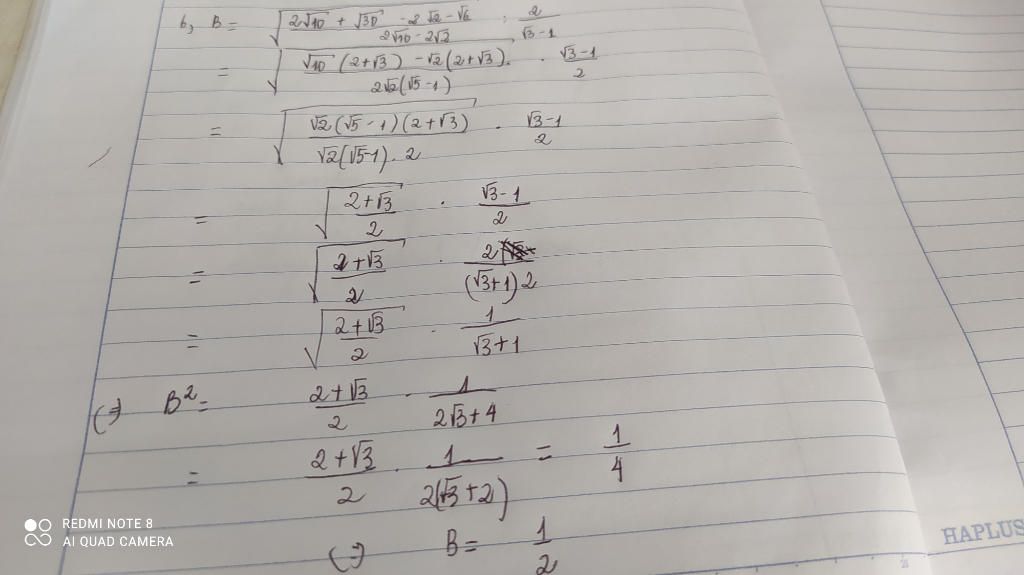 b, B = √((2√10 + √30 - 2√2 - √6)/(2√10 - 2√2)) : 2/(√3-1)
= √((√10(2+√3) - √2(2+√3))/(2√2(√5-1))) · (√3-1)/2
= √((√2(√5-1)(2+√3))/(√2(√5-1).2)) · (√3-1)/2
= √((2+√3)/2) · (√3-1)/2
= √((2+√3)/2) · 2/((√3+1)2)
= √((2+√3)/2) · 1/(√3+1)
(=) B² = (2+√3)/2 · 1/(2√3+4)
= (2+√3)/2 · 1/(2(√3+2)) = 1/4
(=) B = 1/2
REDMI NOTE 8
AI QUAD CAMERA
HAPLUS